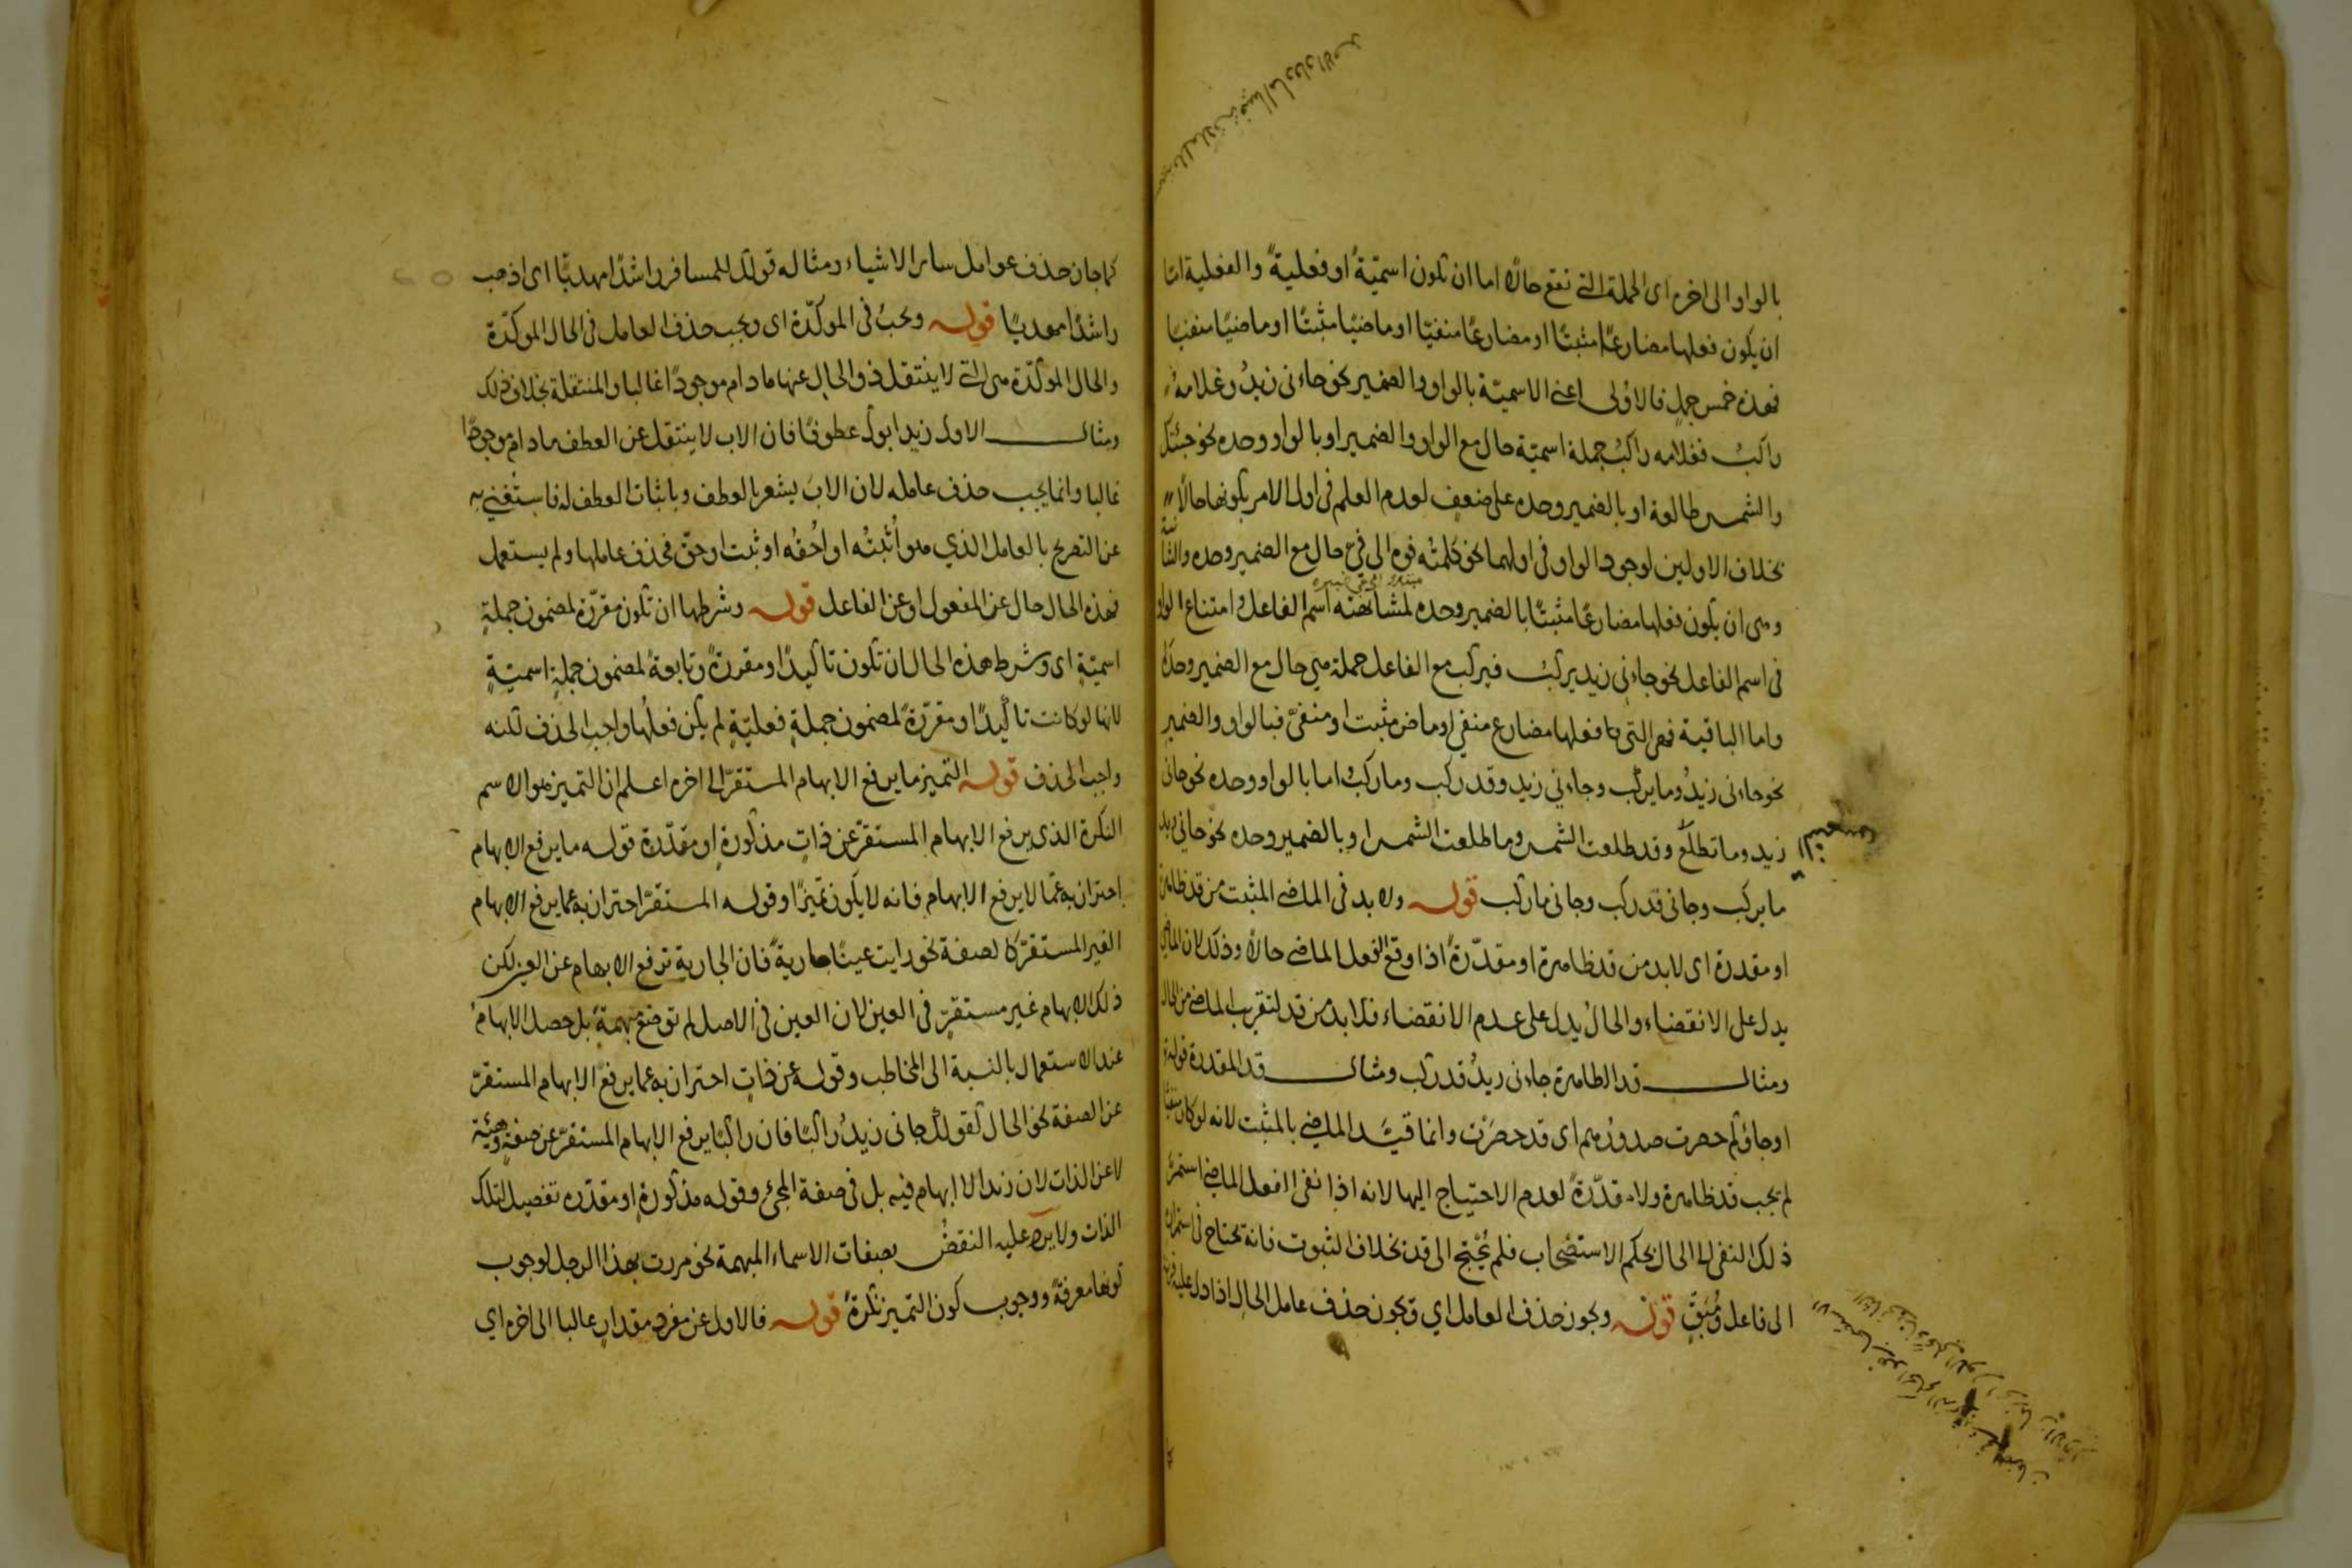 بالواو الى اخره اى الجملة التى تقع حالا اما ان تكون اسميّةً او فعليةً والفعلية امّا
ان يكون فعلها مضارعًا مثبتًا او مضارعًا منفيّا او ماضيًا مثبتًا او ماضيًا منفيًا
فهذه خمس جملٍ فالاولى اعنى الاسميّة بالواو والضمير نحو جاءنى زيدٌ وغلامهُ
راكبٌ فغلامه راكبٌ جملة اسميّة حال مع الواو والضمير او بالواو وحده نحو جئتك
والشمس طالعة او بالضمير وحده على ضعفٍ لعدم العلم فى اول الامر بكونها حالًا
بخلاف الاولين لوجود الواو فى اولهما نحو كلمتُه فوه الى فىّ حال مع الضمير وحده والثانية
وهى ان يكون فعلها مضارعًا مثبتًا بالضمير وحده لمشابهته اسم الفاعل وامتناع الواو
فى اسم الفاعل نحو جاءنى زيد يركبُ فيركب مع الفاعل جملة هى حال مع الضمير وحده
واما الباقية فهى التى فعلها مضارع منفى او ماض مثبت او منفىّ فبالواو والضمير
نحو جاءنى زيدٌ وما يركب وجاءنى زيد وقد ركب وما ركب اما بالواو وحده نحو جانى
زيد وما تطلع وقد طلعت الشمس وما طلعت الشمس او بالضمير وحده نحو جانى زيد
ما يركب وجانى قد ركب وجانى ما ركب قوله ولا بد فى الماضى المثبت من قد ظاهرة
او مقدرة اى لابد من قد ظاهرة او مقدّرةً اذا وقع الفعل الماضى حالا وذلك لان الماضى
يدل على الانقضاء والحالُ يدل على عدم الانقضاء فلا بد من قد لتقرب الماضى من الحال
ومثال قد الظاهرة جاءنى زيدٌ قد ركب ومثال قد المقدرة قوله
او جاؤكم حصرت صدورهم اى قد حصرَت وانما قيّد الماضى بالمثبت لانه لو كان منفيًا
لم يجب قد ظاهرة ولا مقدّرةً لعدم الاحتياج اليها لانه اذا نفى الفعل الماضى استمرّ
ذلك النفى الى الحال بحكم الاستصحاب فلم يُحْتج الى قد بخلاف الثبوت فانه يحتاج فى استمراره
الى فاعل مُبْقٍ قوله ويجوز حذف العامل اي ويجوز حذف عامل الحال اذا دل عليه قرينة
كما جاز حذف عوامل ساير الاشياء ومثاله قولك للمسافر راشدًا مهديًّا اى اذهب
راشدًا مهديًا قوله ويجبُ فى الموكّدة اى ويجب حذف العامل فى الحال الموكّدة
والحال الموكّدة هى التى لا ينتقل ذو الحال عنها ما دام موجودًا غالبا والمنتقلة بخلاف ذلك
ومثال الاول زيد ابوك عطوفًا فان الاب لا ينتقل عن العطف ما دام موجودًا
غالبا وانما يجب حذف عامله لان الابَ يشعر بالعطف وباثبات العطف له فاستغني به
عن التصريح بالعامل الذي هو اُثْبتُه او اُحُقّه او ثبت او حقّ فحذف عاملها ولم يستعمل
فهذه الحال حال عن المفعول او عن الفاعل قوله وشرطها ان تكون مقرّرة لمضمون جملةٍ
اسميّةٍ اى وشرط هذه الحال ان تكون تاكيدًا ومقررةً وتابعةً لمضمون جملةٍ اسميّةٍ
لانها لو كانت تاكيدًا ومقرّرةً لمضمون جملةٍ فعليّةٍ لم يكن فعلُها واجبَ الحذف لكنه
واجب الحذف قوله التميز ما يرفع الابهام المستقرّ الى اخره اعلم ان التميز هو الاسم
النكرة الذى يرفع الابهام المستقرّ عن ذاتٍ مذكورةٍ او مقدّرة قوله ما يرفع الابهام
احتراز به عمّا لا يرفع الابهام فانه لا يكون تميزًا وقوله المستقرّ احتراز به عما يرفع الابهام
الغير المستقرّ كالصفة نحو رايت عينًا جاريةً فان الجارية ترفع الابهام عن العين لكن
ذلك الابهام غير مستقرٍّ فى العين لان العين فى الاصل لم توضع مبهمةً بل حصل الابهامُ
عند الاستعمال بالنسبة الى المخاطب وقوله عن ذاتٍ احتراز به عما يرفع الابهام المستقرّ
عن الصفة نحو الحال كقولك جانى زيدٌ راكبًا فان راكبًا يرفع الابهام المستقرّ عن صفةٍ وهيئة
لا عن الذات لان زيدا لا ابهام فيه بل فى صفة المجئ وقوله مذكورةٍ او مقدّره تفصيل لتلك
الذات ولا يرد عليه النقضُ بصفات الاسماء المبهمة نحو مررت بهذا الرجل لوجوب
كونها معرفةً ووجوب كون التميز نكرةً قوله فالاول عن مفردٍ مقدارٍ غالبا الى اخره اي